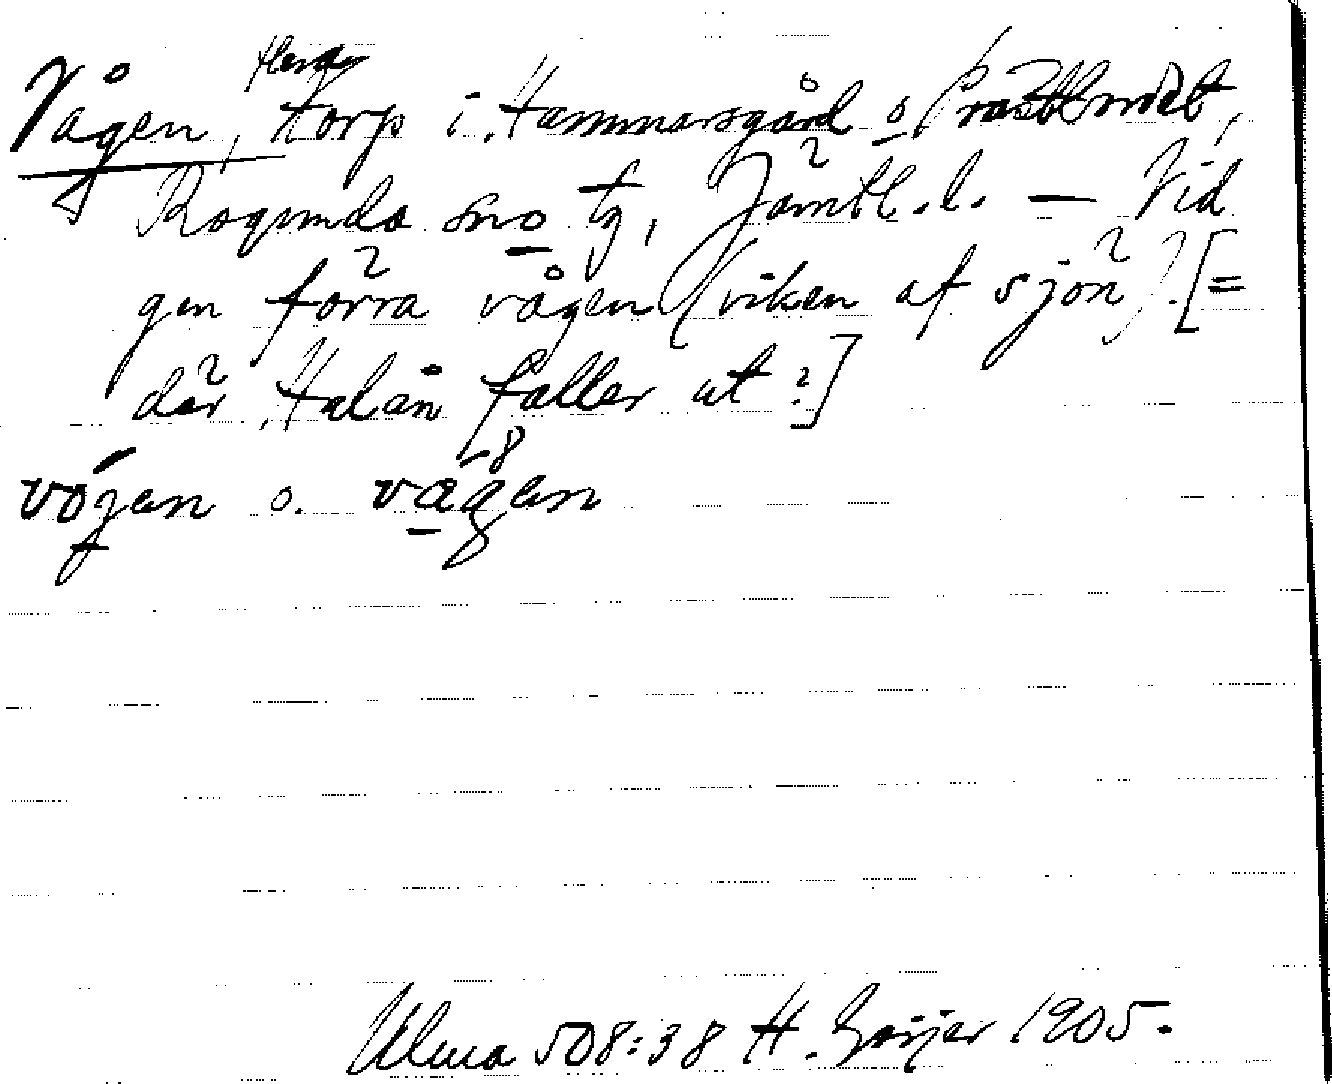 flera
Vågen, torp i Hammarsgård o. Prästbordet,
Ragunda sn o tg, Jämtl. l. — Vid
gen förra vågen (viken af sjön). [=
där Halån faller ut?]
vójen o. vågen
Ulma 508:38 H. Geijer 1905.